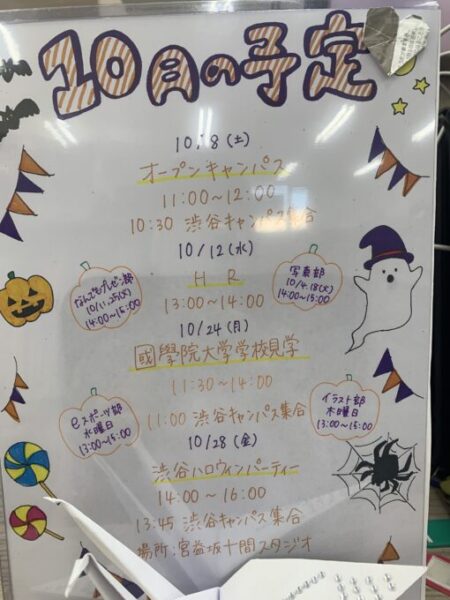 10月の予定
10/8(土)
オープンキャンパス
11:00～12:00
10:30 渋谷キャンパス集合
10/12(水)
HR
13:00～14:00
なんでもプレゼン部
10/11,25(火)
14:00～15:00
写真部
10/4,18(火)
14:00～15:00
10/24(月)
國學院大学学校見学
11:30～14:00
11:00 渋谷キャンパス集合
eスポーツ部
水曜日
13:00～15:00
イラスト部
木曜日
13:00～15:00
10/28(金)
渋谷ハロウィンパーティー
14:00～16:00
13:45 渋谷キャンパス集合
場所:宮益坂十間スタジオ